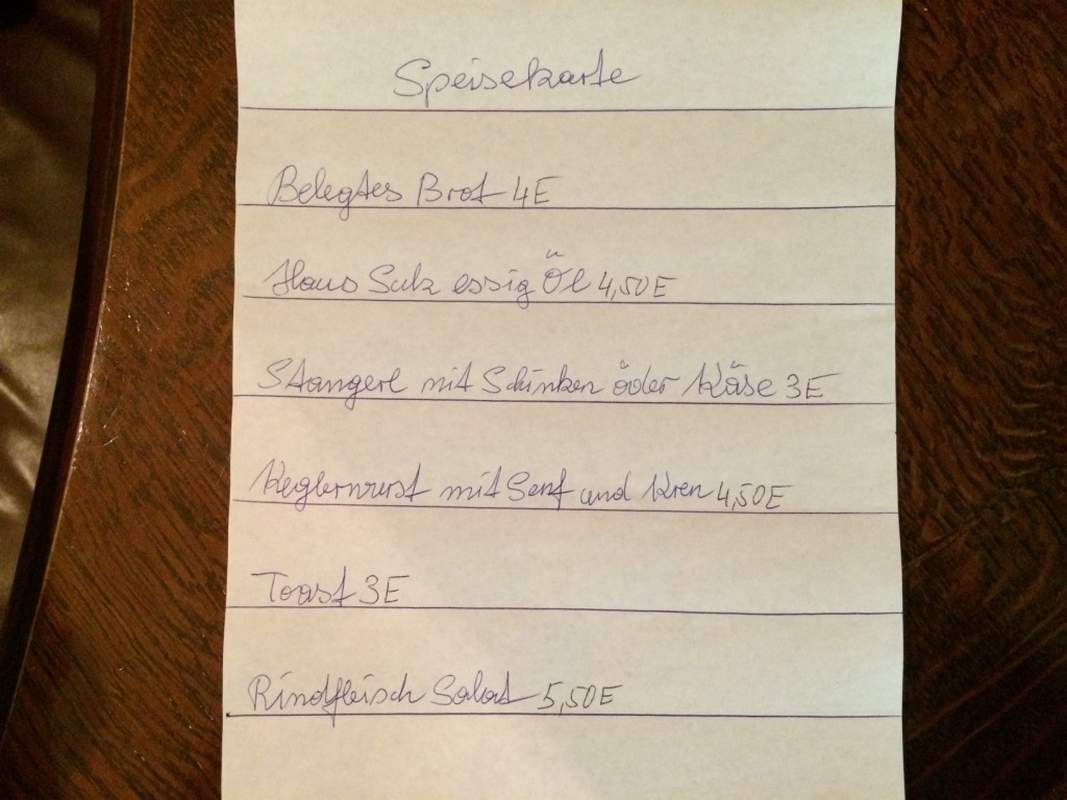 Speisekarte
Belegtes Brot 4E
Haus Sulz essig Öl 4,50E
Stangerl mit Schinken öder Käse 3E
Keglerwurst mit Senf und Kren 4,50E
Toast 3E
Rindfleisch Salat 5,50E